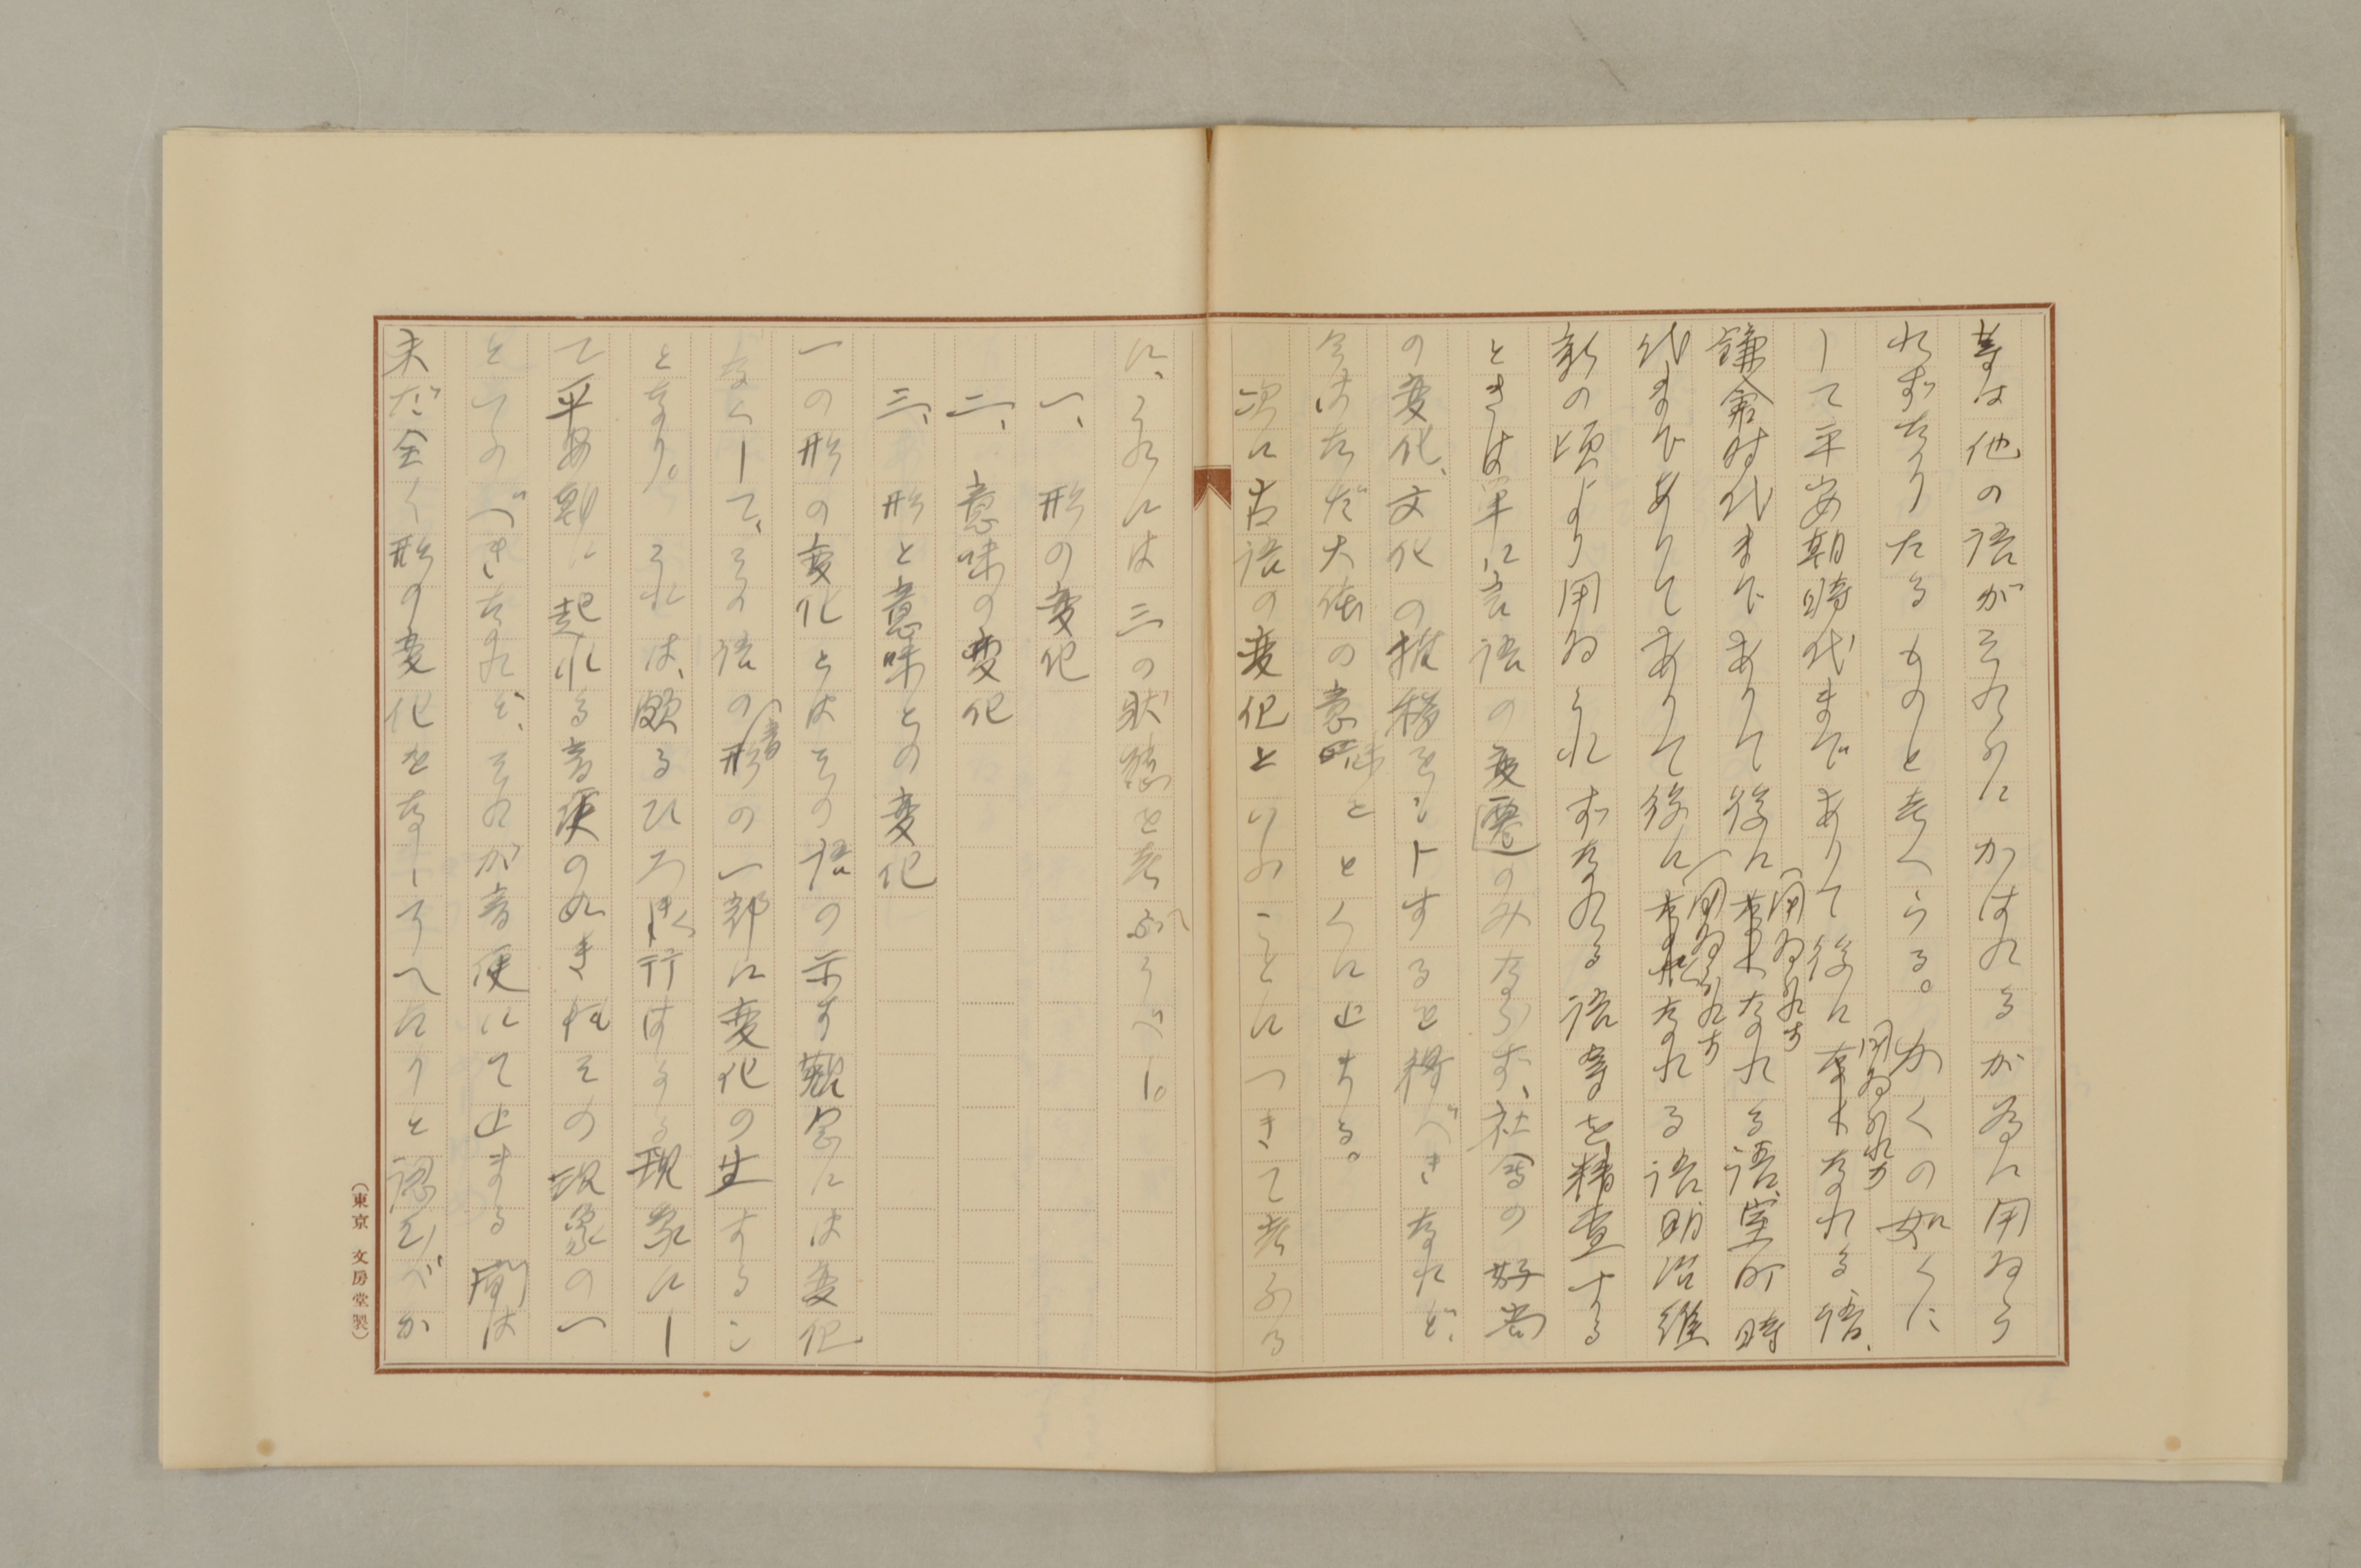 等は他の語がそれにかはれるが為に用ゐら
れずなりたるものと考へらる。かくの如くに
して平安朝時代までありて後に用ゐられずなれる語、
鎌倉時代までありて後に用ゐられずなれる語、室町時
代まではありてありて後に用ゐられずなれる語、明治維
新の頃より用ゐられずなれる語等を精査する
ときは単に言語の変遷のみならず、社会の好尚
の変化、文化の推移をもトするを得べきなれど、
今はただ大体の意味をとくに止まる。
次に古語の変化といふことにつきて考ふる
に、これには三の状態を考ふべし。
一、形の変化
二、意味の変化
三、形と意味との変化
一の形の変化とはその語の示す観念には変化
なくして、その語の音形の一部に変化の生するこ
となり。これは、頗るひろく行はるる現象にし
て平安朝に起れる音便の如きもその現象の一
といふべきなれど、それが音便にて止まる間は
未だ全く形の変化を為しをへたりと認むべか
(東京 文房堂製)